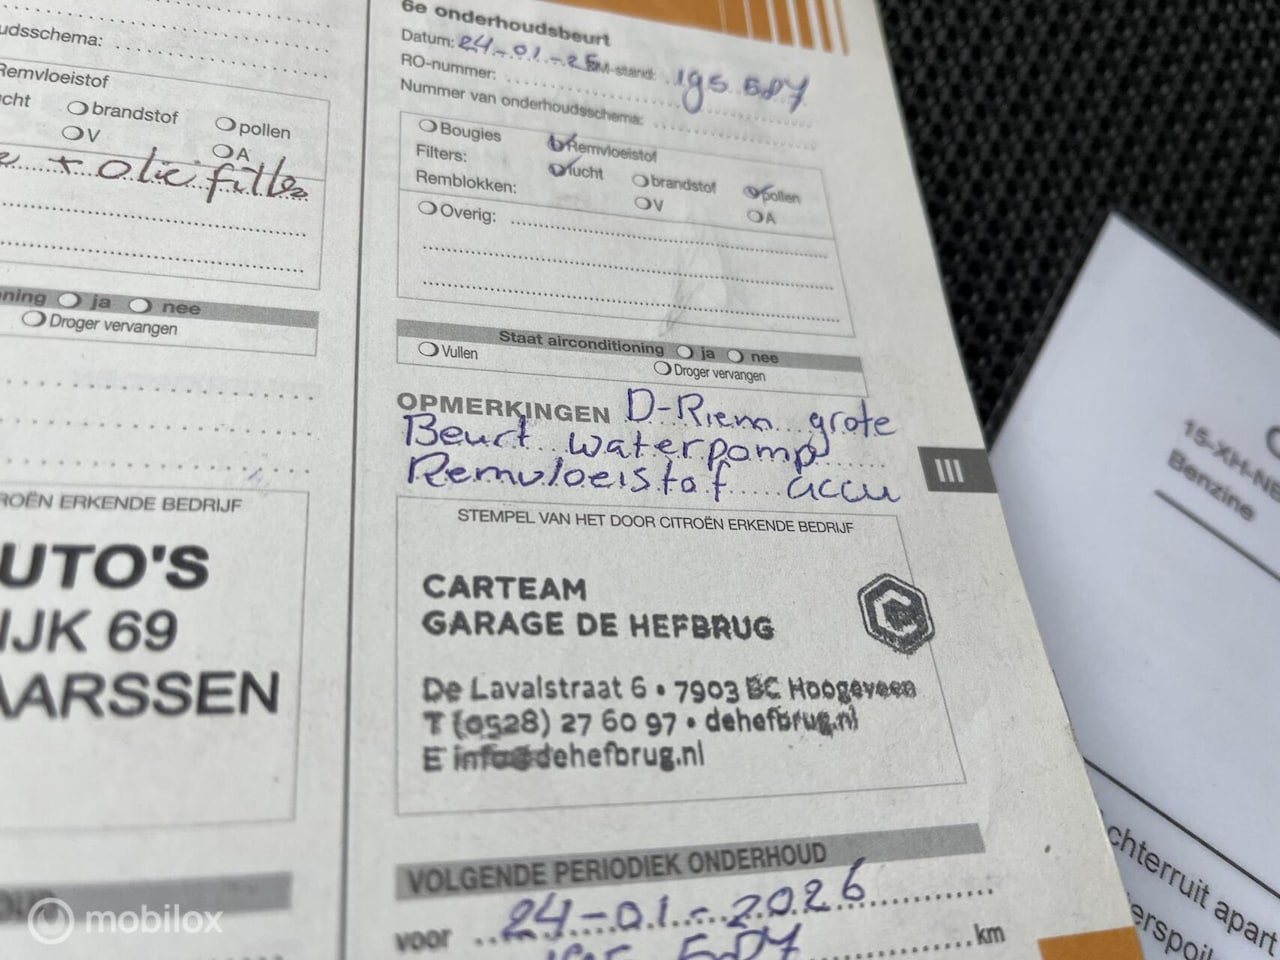 udsschema:
Remvloeistof
cht brandstof pollen
V A
+ olie filter
ning ja nee
Droger vervangen
ROËN ERKENDE BEDRIJF
UTO'S
IJK 69
AARSSEN
6e onderhoudsbeurt
Datum: 24-01-25 KM-stand:
RO-nummer:
Nummer van onderhoudsschema:
Bougies Remvloeistof
Filters: lucht brandstof pollen
Remblokken: V A
Overig:
Staat airconditioning ja nee
Vullen Droger vervangen
OPMERKINGEN D-Riem grote
Beurt waterpomp
Remvloeistof accu
III
STEMPEL VAN HET DOOR CITROËN ERKENDE BEDRIJF
CARTEAM
GARAGE DE HEFBRUG
De Lavalstraat 6 • 7903 BC Hoogeveen
T (0528) 27 60 97 • dehefbrug.nl
E info@dehefbrug.nl
VOLGENDE PERIODIEK ONDERHOUD
voor 24-01-2026
km
15-XH-N
Benzine
chterruit apart
erspoil
mobilox